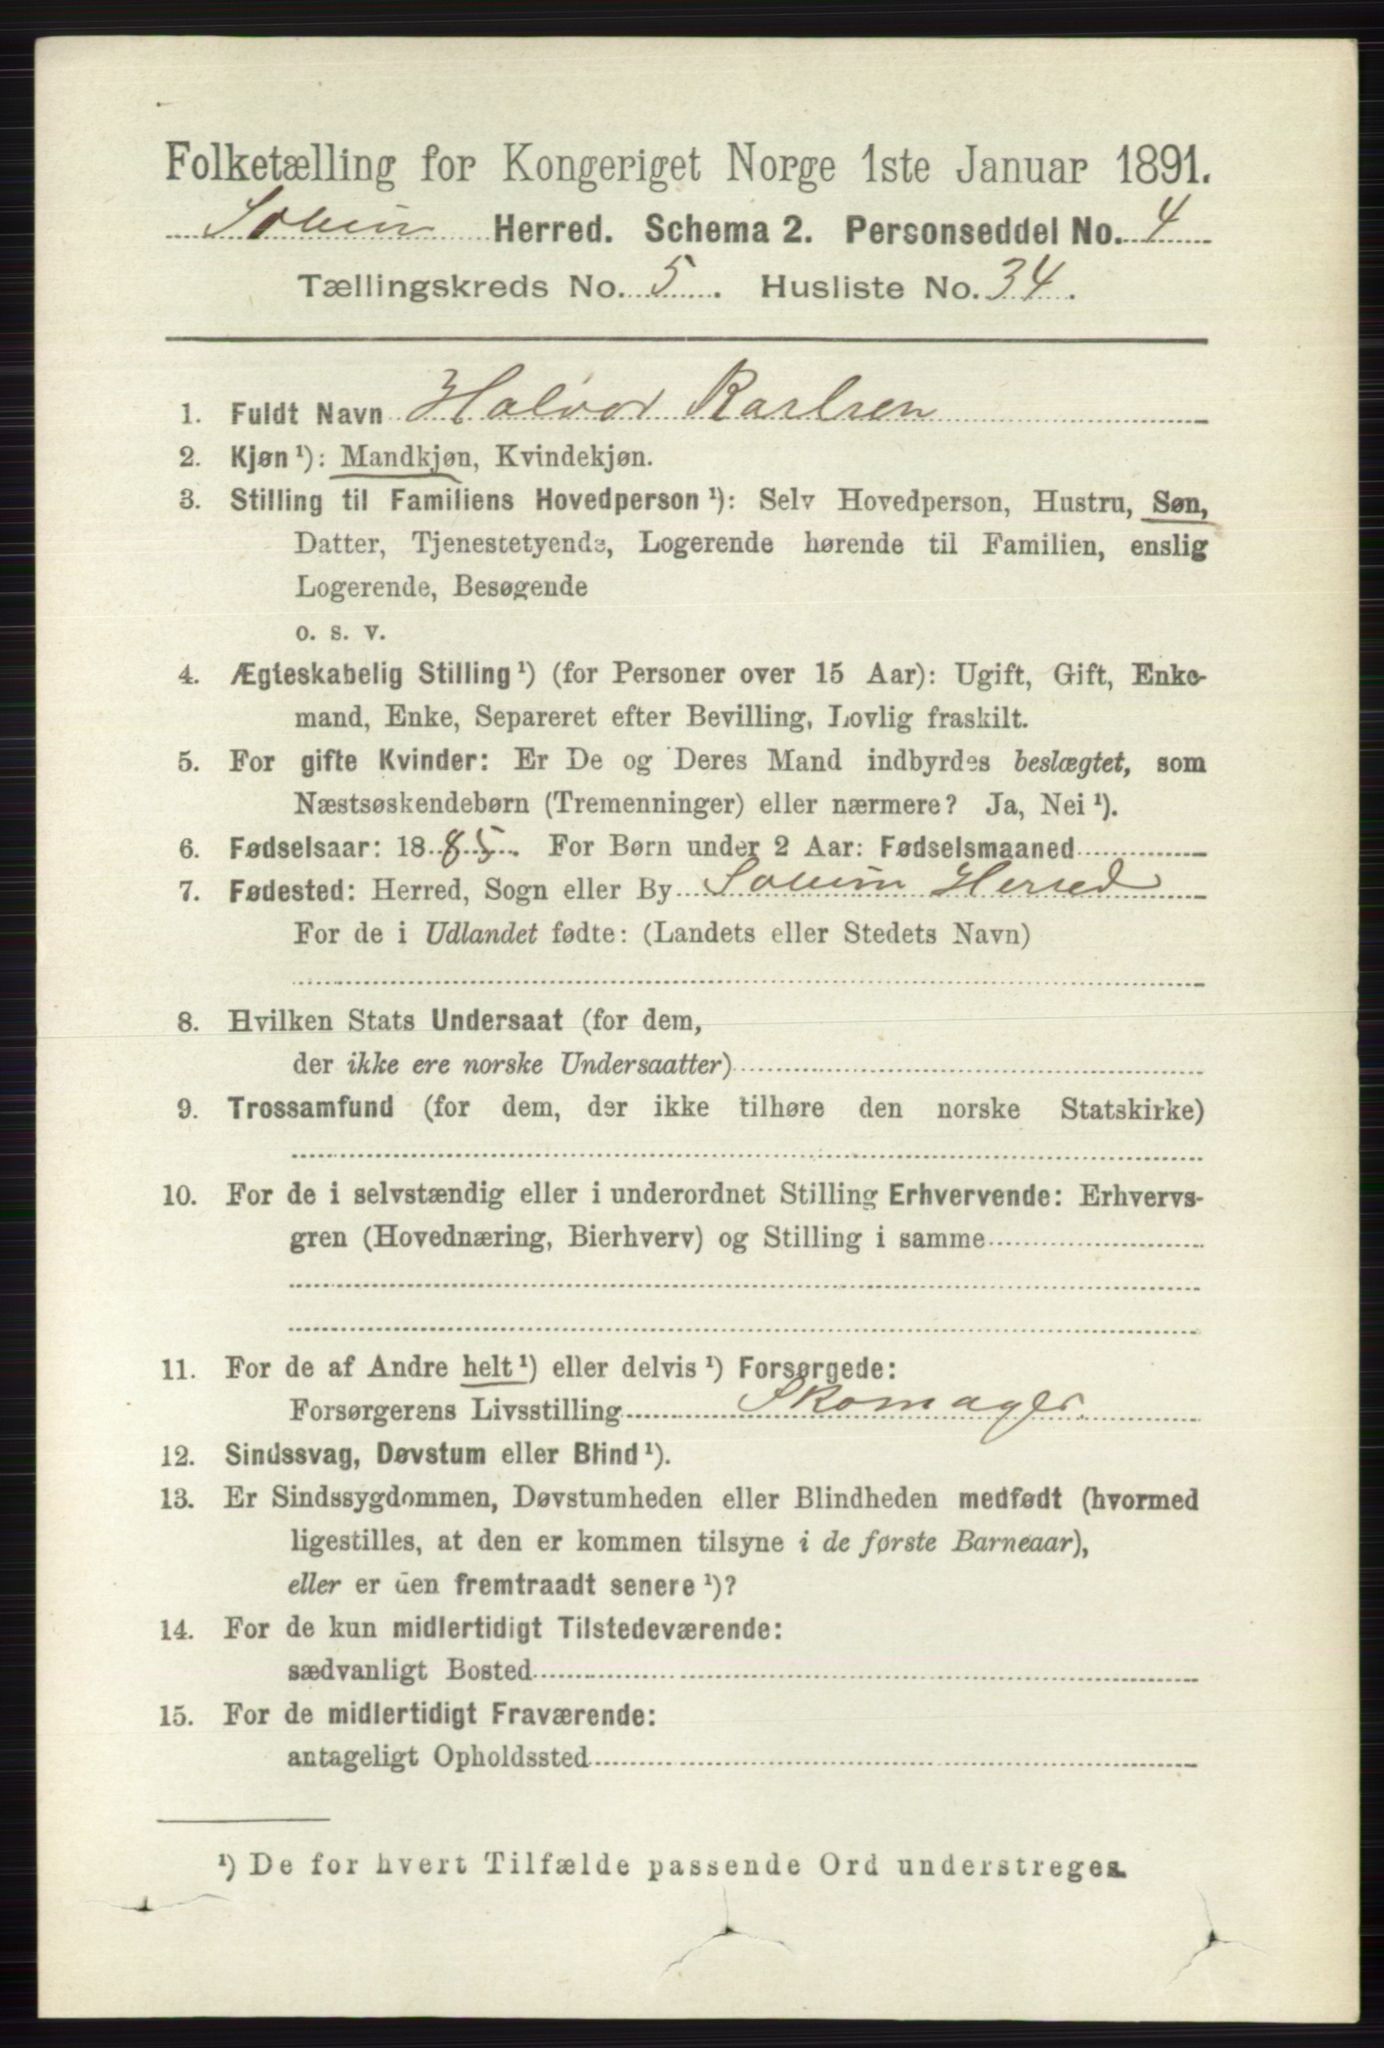 Folketælling for Kongeriget Norge 1ste Januar 1891.
Solum Herred. Schema 2. Personseddel No. 4
Tællingskreds No. 5. Husliste No. 34.
1. Fuldt Navn Halvor Karlsen
2. Kjøn ¹): Mandkjøn, Kvindekjøn.
3. Stilling til Familiens Hovedperson ¹): Selv Hovedperson, Hustru, Søn,
Datter, Tjenestetyende, Logerende hørende til Familien, enslig
Logerende, Besøgende
o. s. v.
4. Ægteskabelig Stilling ¹) (for Personer over 15 Aar): Ugift, Gift, Enke-
mand, Enke, Separeret efter Bevilling, Lovlig fraskilt.
5. For gifte Kvinder: Er De og Deres Mand indbyrdes beslægtet, som
Næstsøskendebørn (Tremenninger) eller nærmere? Ja, Nei ¹).
6. Fødselsaar: 1885. For Børn under 2 Aar: Fødselsmaaned
7. Fødested: Herred, Sogn eller By Solum Herred
For de i Udlandet fødte: (Landets eller Stedets Navn)
8. Hvilken Stats Undersaat (for dem,
der ikke ere norske Undersaatter)
9. Trossamfund (for dem, der ikke tilhøre den norske Statskirke)
10. For de i selvstændig eller i underordnet Stilling Erhvervende: Erhvervs-
gren (Hovednæring, Bierhverv) og Stilling i samme
11. For de af Andre helt ¹) eller delvis ¹) Forsørgede:
Forsørgerens Livsstilling Skomager.
12. Sindssvag, Døvstum eller Blind ¹).
13. Er Sindssygdommen, Døvstumheden eller Blindheden medfødt (hvormed
ligestilles, at den er kommen tilsyne i de første Barneaar),
eller er den fremtraadt senere ¹)?
14. For de kun midlertidigt Tilstedeværende:
sædvanligt Bosted
15. For de midlertidigt Fraværende:
antageligt Opholdssted
¹) De for hvert Tilfælde passende Ord understreges.